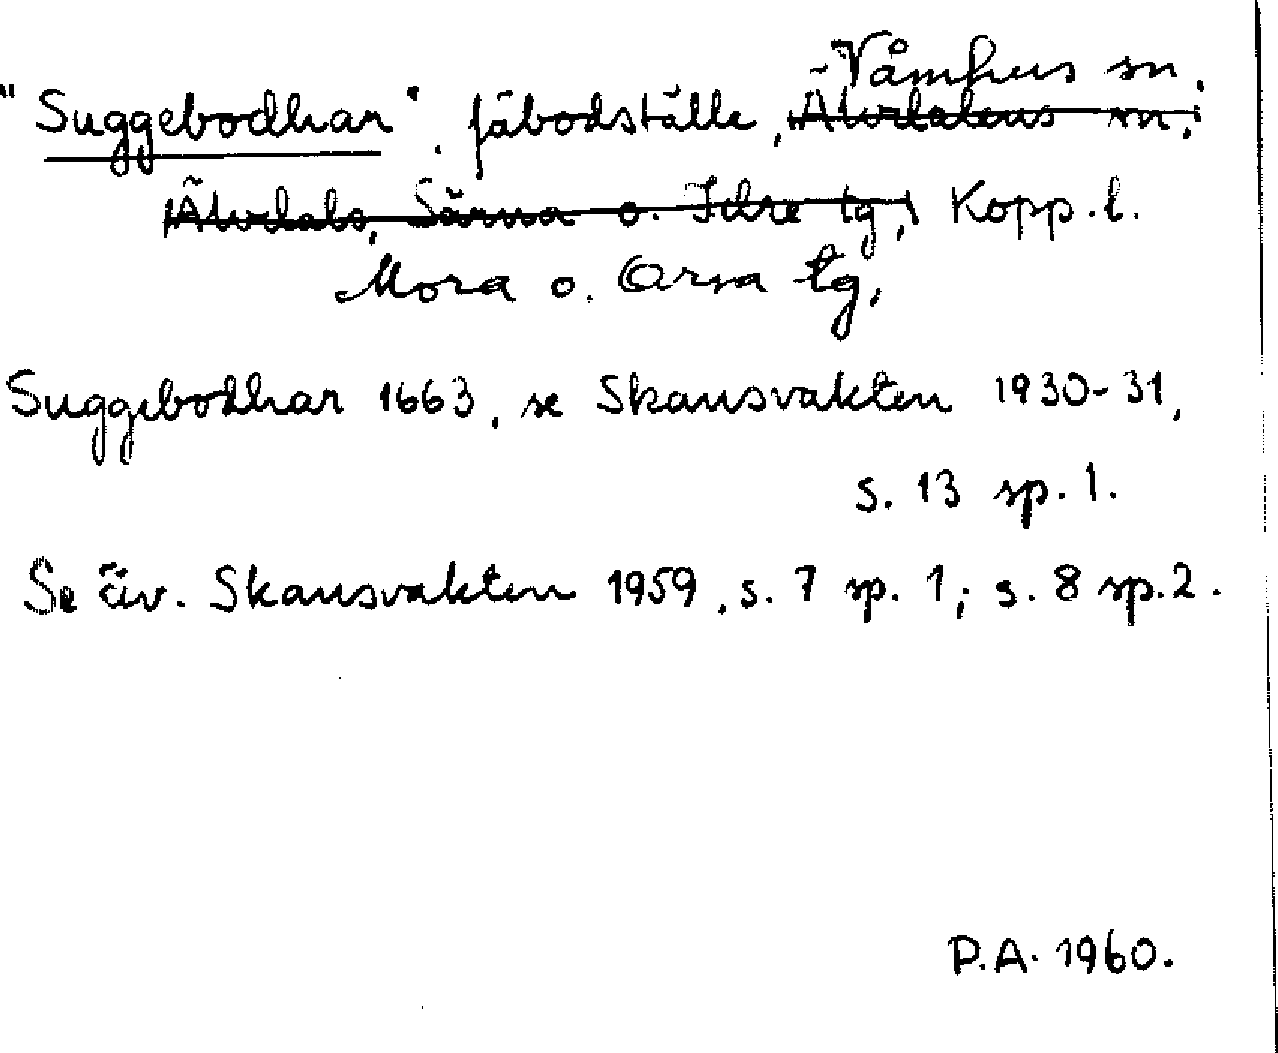 Våmhus sn.
"Suggebodhar". fäbodställe, Älvdalens sn,
Älvdals, Särna o. Idre tg, Kopp. l.
Mora o. Orsa tg,
Suggebodhar 1663, se Skansvakten 1930-31,
s. 13 sp. 1.
Se äv. Skansvakten 1959, s. 7 sp. 1; s. 8 sp. 2.
P.A. 1960.